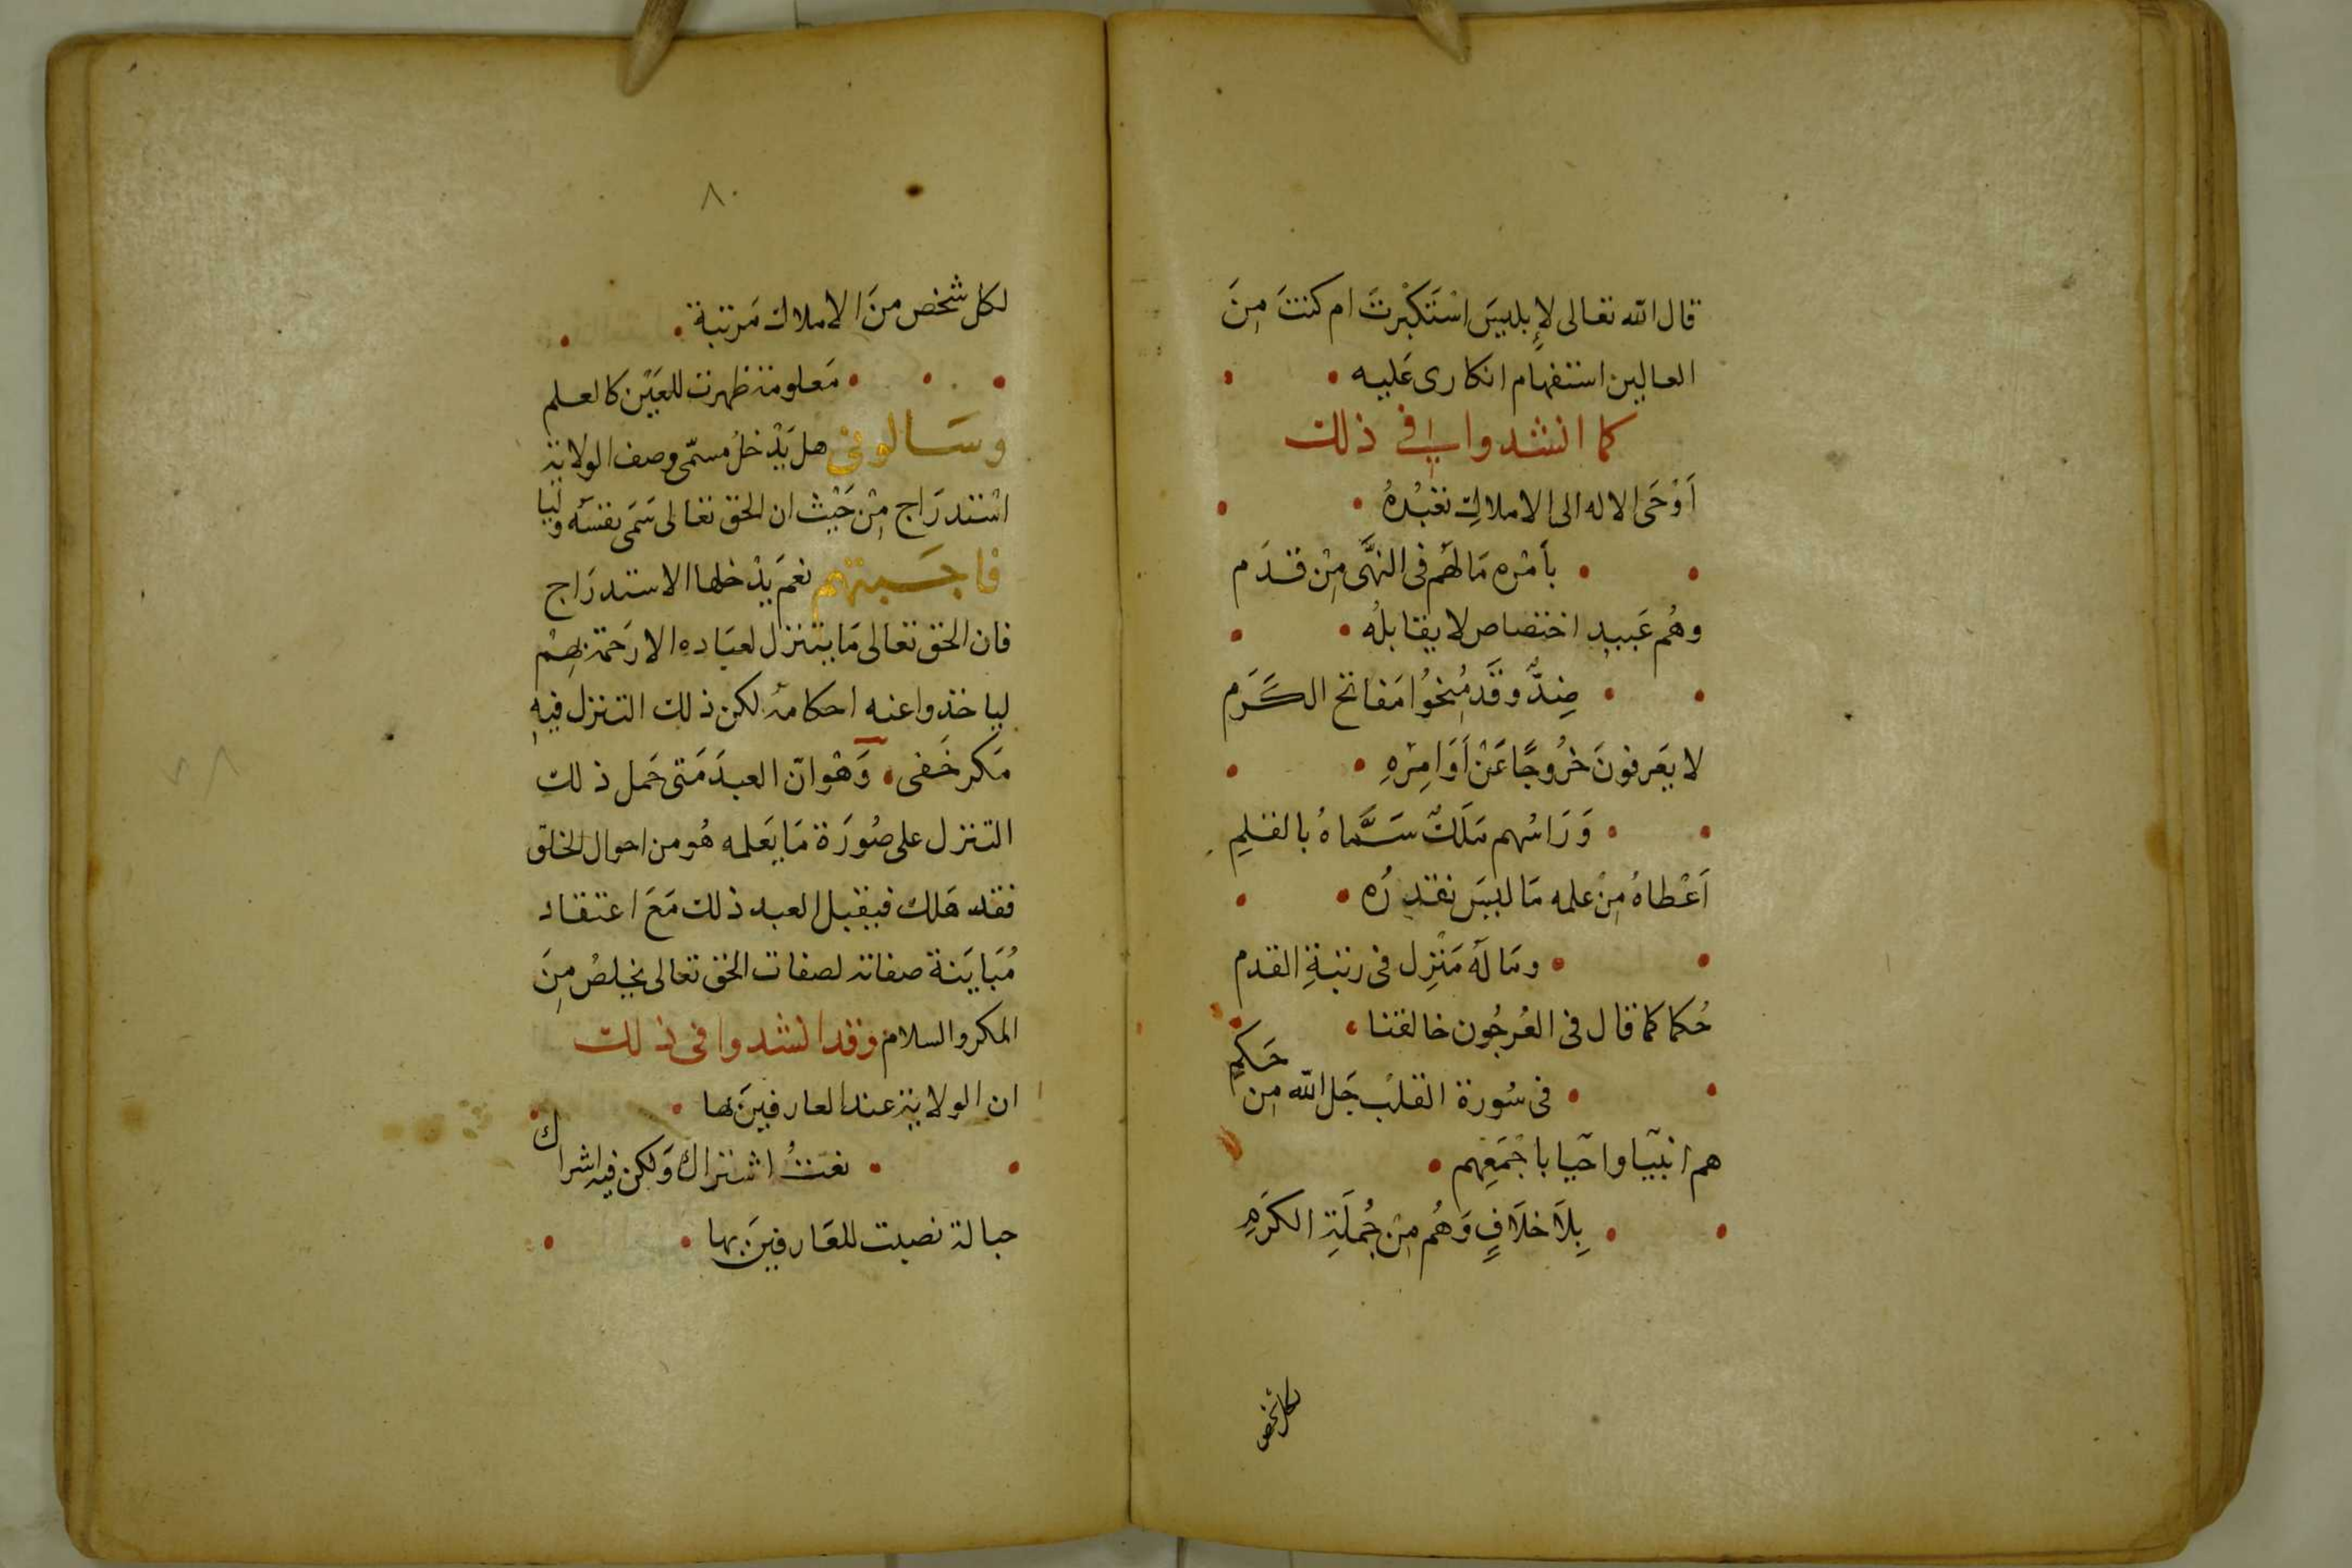 قال الله تعالى لإبليسَ اسْتَكبْرتَ ام كنتَ مِنَ
العالين استفهام انكارى عَليه
كما انشدوا فى ذلك
اَوْحَى الاله الى الاملاكِ تعبُدهُ
بأمْره مَا لهَم فى النهَّى مِنْ قدَم
وهُم عَبيد اختصاص لا يقابلُه
ضِدٌّ وقَد مُنِحُوا مَفاتح الكَرَم
لا يعَرفونَ خُروجًا عَنْ اَوَامِرْهِ
وَرَاسُهم مَلَكٌ سَمَّاهُ بالقلمِ
اَعْطاهُ مِنْ علمه مَا ليسَ نقدرُه
ومَا لَهُ مَنْزِل فى رتبةِ القدم
حُكما كما قال فى العُرجُون خالقنا
فى سُورة القلبْ جَل الله مِن حَكَمِ
هم انبيآ واحيآ باجْمَعِهم
بِلاَ خلاَفٍ وَهُم مِنْ جُملَةِ الكَرَمِ
لكل شخص
٨٠
لكل شخص منَ الاملاك مَرتبة
مَعلومة ظهرت للعَيْن كالعلم
وسَالونى هل يَدْخلُ مسمّى وصف الولاية
اسْتدرَاج مِنْ حَيْث ان الحق تعالى سَمَى نفسَه وليا
فاجَبتهم نعمَ يدْخلها الاستدرَاج
فان الحق تعالى مَا يتنزل لعبَاده الا رَحمة بهِمْ
لياخذوا عنه احكامهُ لكن ذلك التنزل فيهِ
مَكر خَفى وَهْو انّ العبدَ مَتى حَمل ذلك
التنزل على صُورَة مَا يَعلمه هُو من احوال الخلق
فقد هَلك فيقبل العبد ذلك مَعَ اعتقاد
مُبَايَنة صفاته لصفات الحق تعالى يخلصُ مِنَ
المكر والسلام وقد انشدوا فى ذلك
ان الولاية عند العارفينَ لها
نعتُ اشتراك وَلكن فيه اشراك
حبالة نصبت للعَارفينَ بها